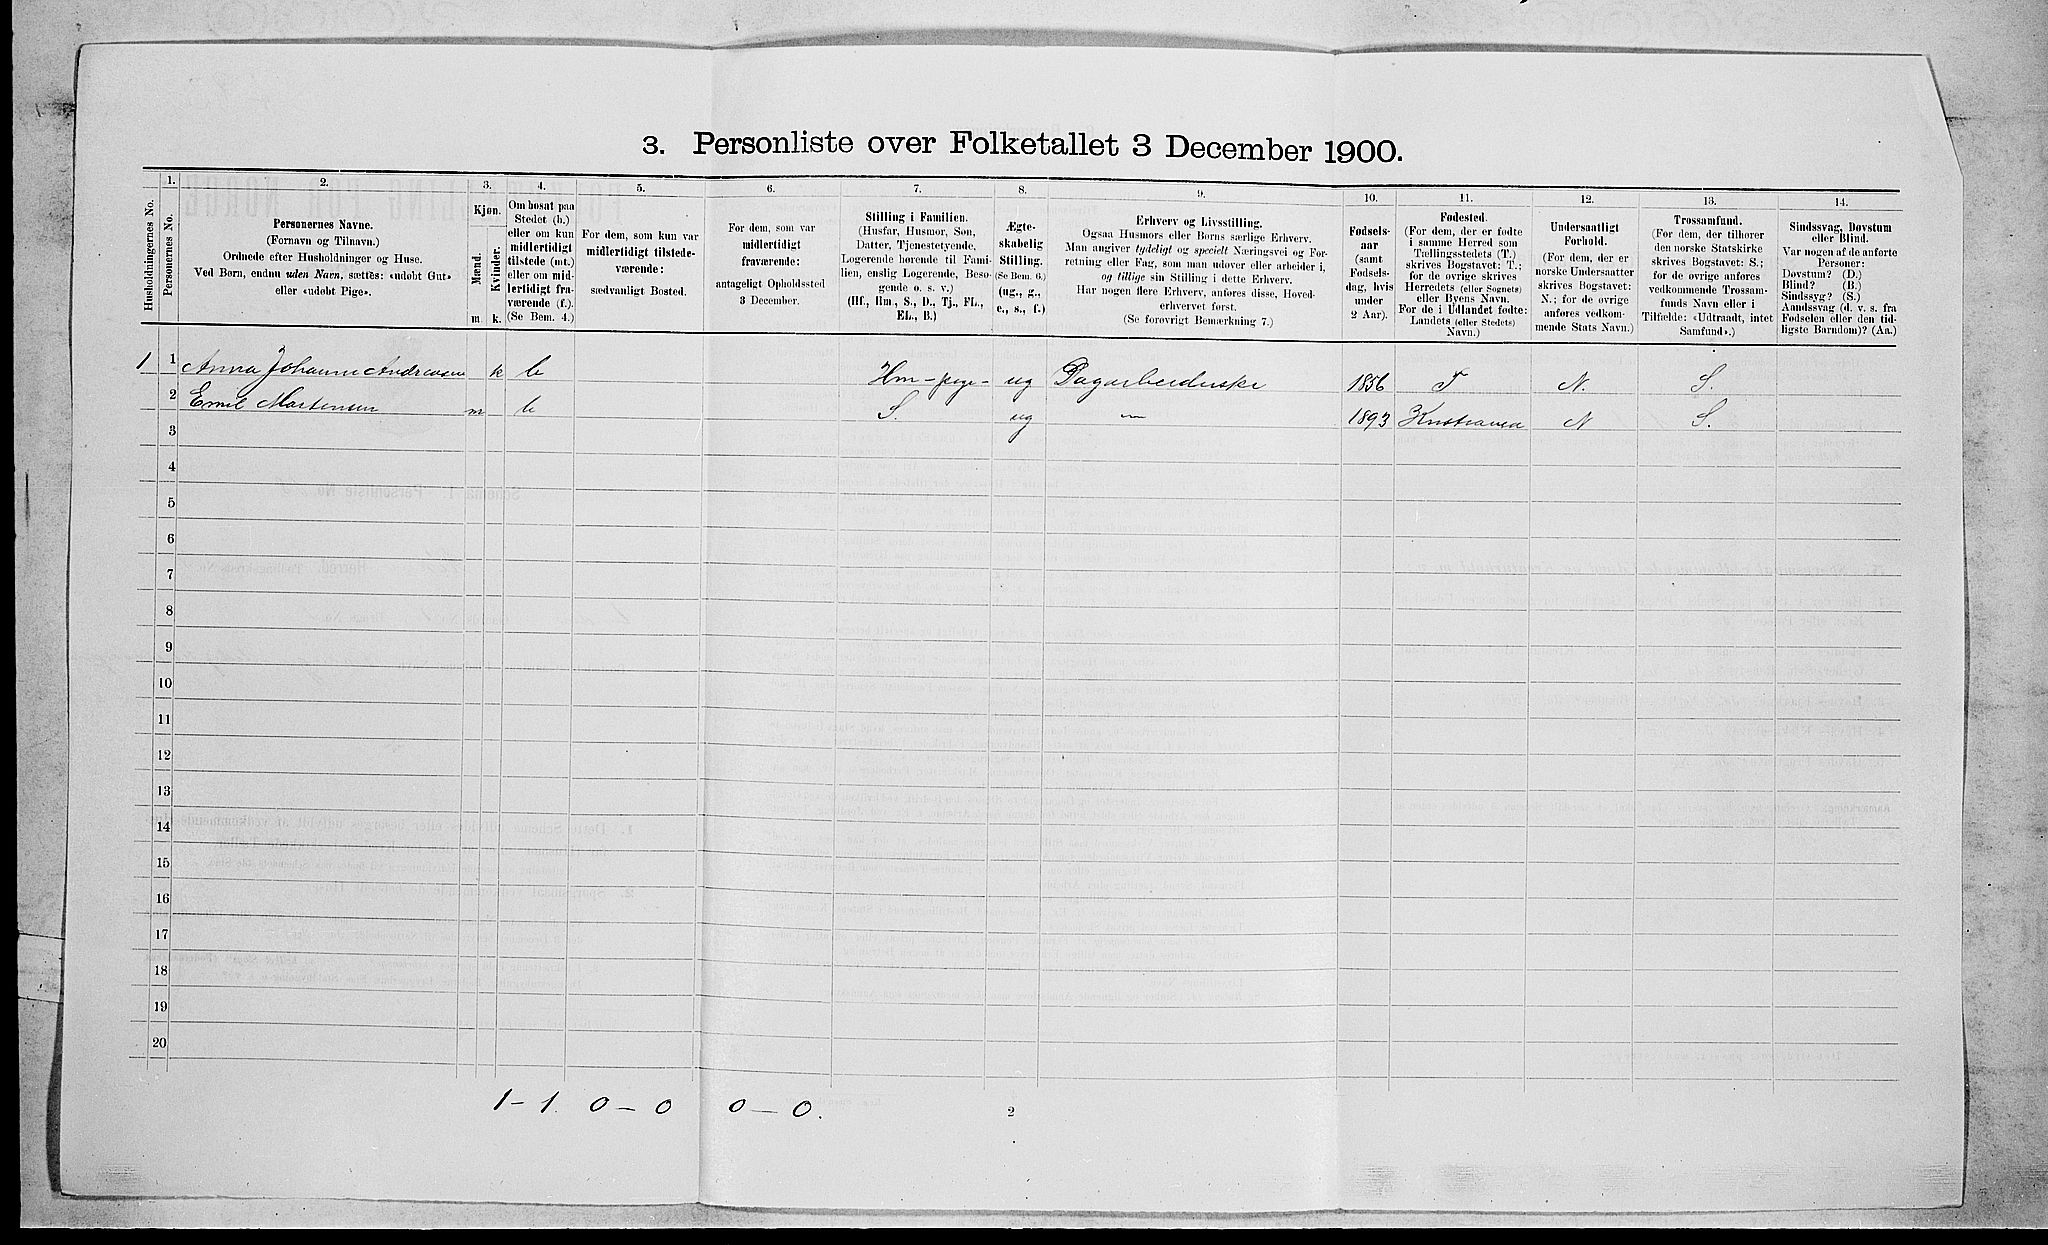 3. Personliste over Folketallet 3 December 1900.
Husholdningernes No.
1.
Personernes No.
2.
Personernes Navne.
(Fornavn og Tilnavn.)
Ordnede efter Husholdninger og Huse.
Ved Børn, endnu uden Navn, sættes: «udøbt Gut»
eller «udøbt Pige».
3.
Kjøn.
Mænd.
Kvinder.
m.
k.
4.
Om bosat paa
Stedet (b.)
eller om kun
midlertidigt
tilstede (mt.)
eller om mid-
lertidigt fra-
værende (f.).
(Se Bem. 4.)
5.
For dem, som kun var
midlertidigt tilstede-
værende:
sædvanligt Bosted.
6.
For dem, som var
midlertidigt
fraværende:
antageligt Opholdssted
3 December.
7.
Stilling i Familien.
(Husfar, Husmor, Søn,
Datter, Tjenestetyende,
Logerende hørende til Fami-
lien, enslig Logerende, Besø-
gende o. s. v.)
(Hf., Hm., S., D., Tj., FL.,
EL., B.)
8.
Ægte-
skabelig
Stilling.
(Se Bem. 6.)
(ug., g.,
e., s., f.)
9.
Erhverv og Livsstilling.
Ogsaa Husmors eller Børns særlige Erhverv.
Man angiver tydeligt og specielt Næringsvei og For-
retning eller Fag, som man udøver eller arbeider i,
og tillige sin Stilling i dette Erhverv.
Har nogen flere Erhverv, anføres disse, Hoved-
erhvervet først.
(Se forøvrigt Bemærkning 7.)
10.
Fødsels-
aar
(samt
Fødsels-
dag, hvis
under
2 Aar).
11.
Fødested.
(For dem, der er fødte
i samme Herred som
Tællingsstedets (T.)
skrives Bogstavet: T.;
for de øvrige skrives
Herredets (eller Sognets)
eller Byens Navn.
For de i Udlandet fødte:
Landets (eller Stedets)
Navn.)
12.
Undersaatligt
Forhold.
(For dem, der er
norske Undersaatter
skrives Bogstavet:
N.; for de øvrige
anføres vedkom-
mende Stats Navn.)
13.
Trossamfund.
(For dem, der tilhører
den norske Statskirke
skrives Bogstavet: S.;
for de øvrige anføres
vedkommende Trossam-
funds Navn eller i
Tilfælde: «Udtraadt, intet
Samfund».)
14.
Sindssvag, Døvstum
eller Blind.
Var nogen af de anførte
Personer:
Døvstum? (D.)
Blind? (B.)
Sindssyg? (S.)
Aandssvag (d. v. s. fra
Fødselen eller den tid-
ligste Barndom)? (Aa.)
1 1 Anna Johanne Andreasen k b Hm - pige - ug Dagarbeiderske 1856 T N. S.
2 Emil Martensen m b S. ug — 1893 Kristiania N S.
3
4
5
6
7
8
9
10
11
12
13
14
15
16
17
18
19
20
1 - 1. 0 - 0 0 - 0.
2